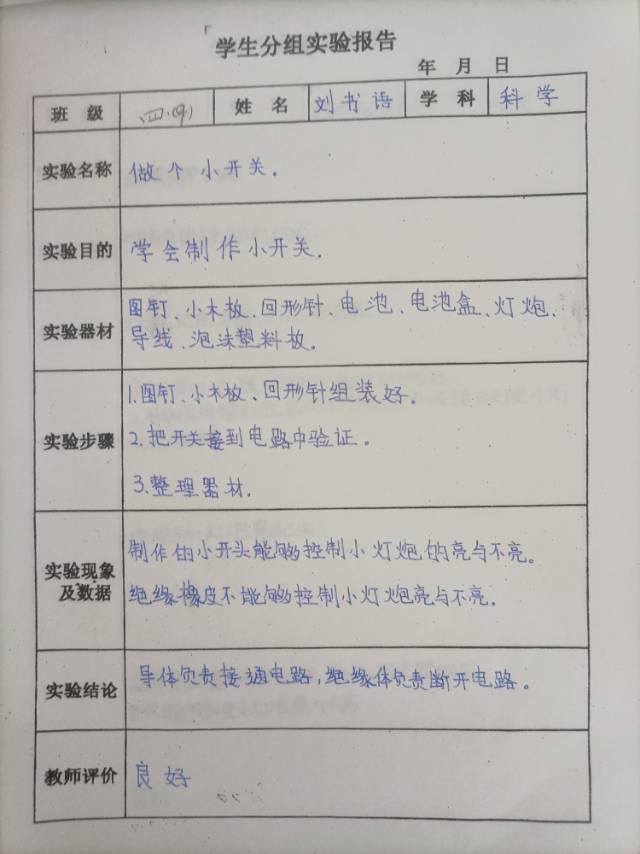 学生分组实验报告
年 月 日
班 级 四.(9) 姓 名 刘书语 学 科 科学
实验名称 做个小开关.
实验目的 学会制作小开关.
实验器材 图钉、小木板、回形针、电池、电池盒、灯炮、
导线、泡沫塑料板。
实验步骤 1.图钉、小木板、回形针组装好。
2.把开关接到电路中验证。
3.整理器材.
实验现象及数据 制作的小开头能够控制小灯炮的亮与不亮。
绝缘橡皮不能够控制小灯炮亮与不亮。
实验结论 导体负责接通电路,绝缘体负责断开电路。
教师评价 良好